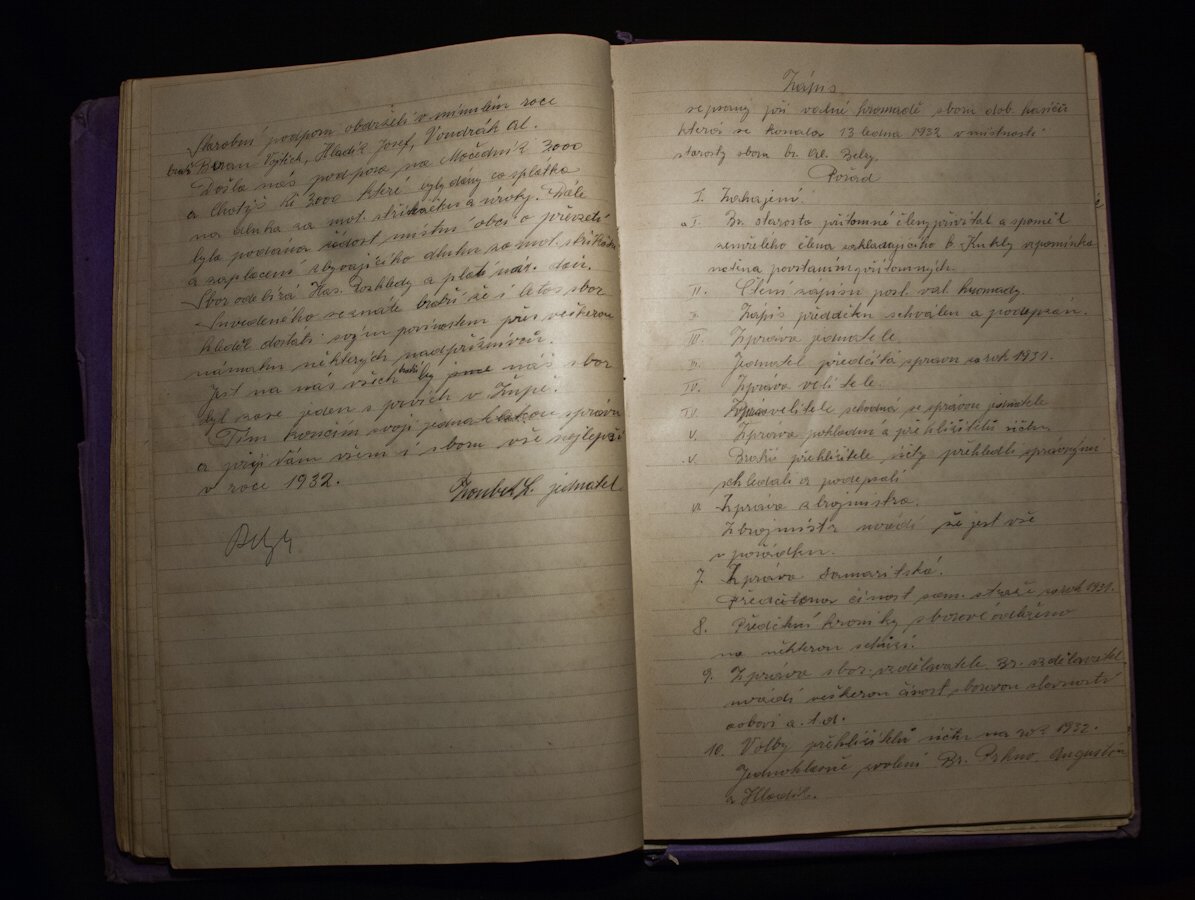 Starobní podporu obdrželi v minulém roce
bratř Beran Vojtěch, Hladík Josef, Vondrák Al.
Došla nás podpora na Močedník 3000
a Chotýš Kč 3000 které byly dány co splátka
na dluhu za mot. stříkačku a úroky. Dále
byla podána žádost místní obci o převzetí
a zaplacení zbývajícího dluhu za mot. stříkačku
Sbor odebírá Has. Rozhledy a platí nár. daň.
uvedeného seznáte bratři že i letos sbor
hleděl dostáti svým povinnostem přes veškerou
námahu některých nadpříznivců.
Jest na nás všech bratři by náš sbor
byl zase jeden s prvích v Župě.
Tím končím svoji jednatelskou zprávu
a přeji Vám všem i sboru vše nejlepší
v roce 1932.
Zoubek L. jednatel
Zápis
sepsaný při valné hromadě sboru dob. hasičů
která se konala 13 ledna 1932 v místnosti
starosty sboru br. Al. Belzy.
Pořad
I. Zahájení.
a I. Br. starosta přítomné členy přivítal a spoměl
zemřelého člena zakládajícího b. Kukly vzpomínka
uctěna povstáním přítomných.
II. Čtení zápisu posl. val. hromady
II. Zápis předčítán schválen a podepsán.
III. Zpráva jednatele.
III. Jednatel předčítá zprávu za rok 1931.
IV. Zpráva velitele.
IV. Zpráva velitele schodná se zprávou jednatele
V. Zpráva pokladní a přehlížitelů účtů
V. Bratři přehlížitelé účty přehledli správnými
shledali a podepsali
VI. Zpráva zbrojmistra.
Zbrojmistr uvádí že jest vše
v pořádku.
7. Zpráva samaritská.
Předčítána činost sam. stráže za rok 1931.
8. Předčítání kroniky sborové odloženo
na některou schůzi.
9. Zpráva sbor. vzdělavatele. Br. vzdělavatel
uvádí veškerou činost sborovou slavnosti
a. t. d.
10. Volby přehlížitelů účtů na rok 1932.
Jednohlasně zvoleni Br. Prkno, Augusta
a Hladík.